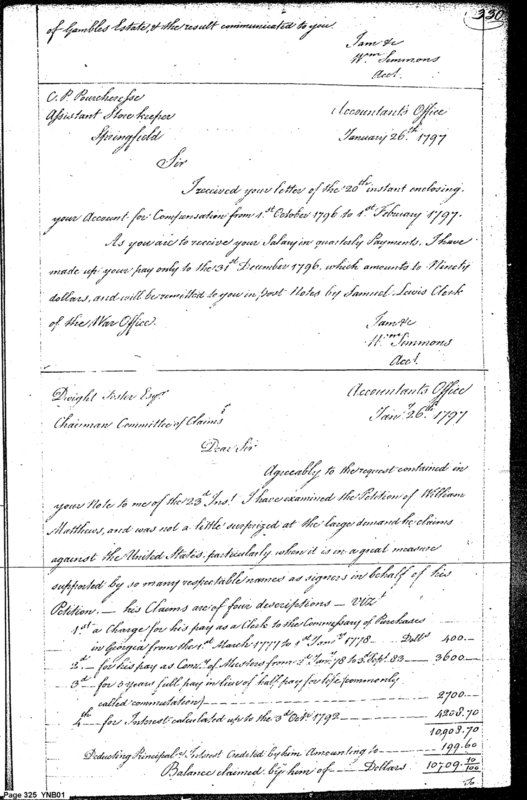 330
of Gambles Estate, & the result communicated to you.
I am &c
Wm. Simmons
Acct.
C. P. Pourcheresse
Assistant Store keeper
Springfield
Accountant's Office
January 26th 1797
Sir
I received your letter of the 20th instant enclosing
your Account for Compensation from 1st October 1796 to 1st February 1797.
As you are to receive your Salary in quarterly Payments, I have
made up your pay only to the 31st December 1796. which amounts to Ninety
dollars, and will be remitted to you in post Notes by Samuel Lewis Clerk
of the War Office.
I am &c
Wm Simmons
Acct.
Dwight Foster Esqr
Chairman Committee of Claims
Accountant's Office
Jany. 26th 1797
Dear Sir
Agreeably to the request contained in
your Note to me of the 23d Inst. I have examined the Petition of William
Matthews, and was not a little surprized at the large demand he claims
against the United States, particularly when it is in a great measure
supported by so many respectable names as signers in behalf of his
Petition. — his Claims are of four descriptions — vizt
1st a Charge for his pay as a Clerk to the Commissary of Purchases
in Georgia from the 1st March 1777 to 1st Jany. 1778 — Dolls 400.—
2d — for his pay as Comy. of Musters from Jany. 78 to 3d Sept. 83 — 3600 —
3d — for 5 years full pay in lieu of half pay for life (commonly
called commutation) — 2700 —
4th — for Interest calculated up to the 3d Octr. 1792 — 4208.70
10,908.70
Deducting Principal & Interest Credited by him Amounting to — 199.60
Balance claimed by him of — Dollars 10709.10/100
To
Page 325 YNB01